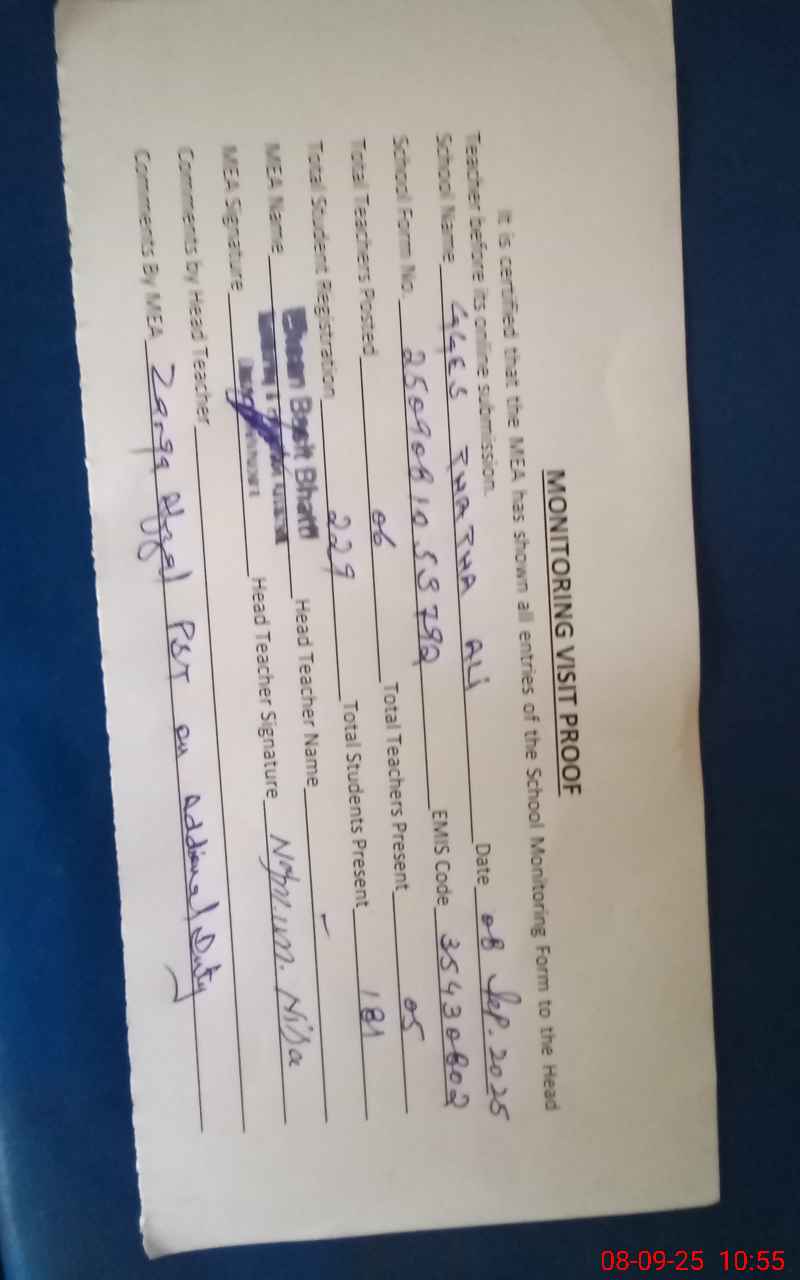 MONITORING VISIT PROOF
It is certified that the MEA has shown all entries of the School Monitoring Form to the Head
Teacher before its online submission.
School Name GGES THATHA ALI Date 08 Sep. 2025
School Form No. EMIS Code 35430802
Total Teachers Posted 06 Total Teachers Present 05
Total Student Registration 229 Total Students Present 181
MEA Name Basit Bhatti Head Teacher Name
MEA Signature Head Teacher Signature Nisa
Comments by Head Teacher
Comments By MEA Afzal PST on Duty
08-09-25 10:55